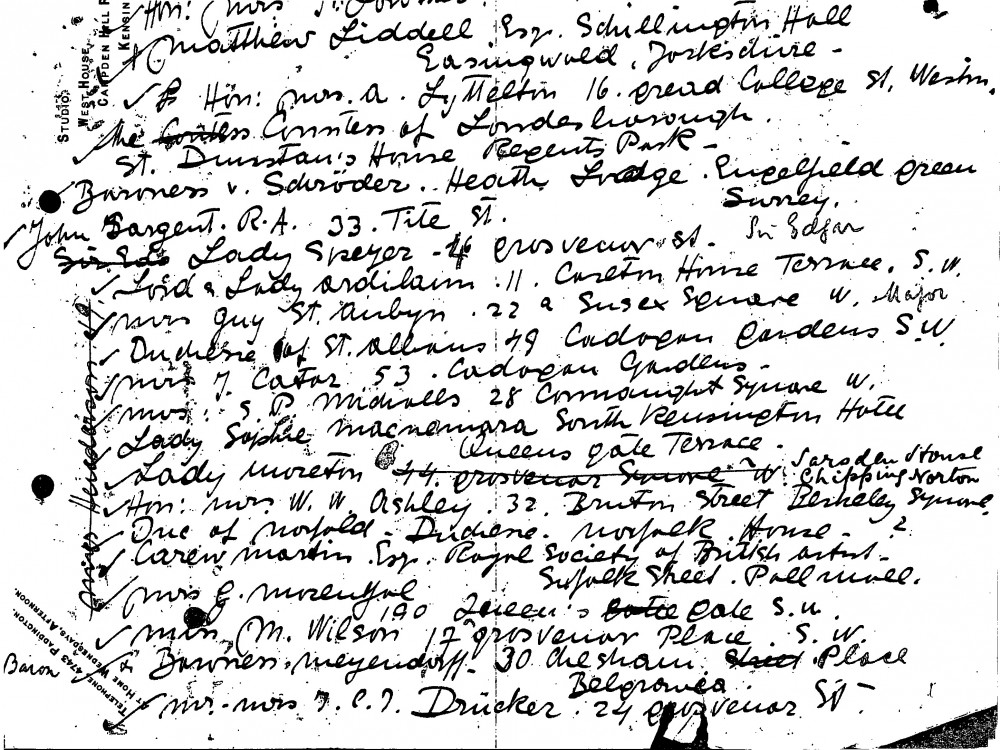 Hon: Mrs
Matthew Liddell Esq. Schillington Hall
Easingwold, Yorkschire -
Hon: Mrs. A. Lyttelton 16. gread College St. Westm.
the Contess Countess of Londesborough.
St. Dunstan's House Regents Park -
Baroness v. Schröder. Heath Lodge. Engelfield green
Surrey.
John Sargent. R.A. 33. Tite St.
Sir Ed Lady Speyer - 46 grosvenor st. Sir Edgar
Lord & Lady Ardilaun. 11. Carlton House Terrace. S.W.
Mrs Guy St. Aubyn. 22 a Susex Square W. Major
Duchesse of St. Albans 49 Cadogan Gardens S.W
Mrs J. Cator 53. Cadogan Gardens.
Mrs: S. P. Nicholls 28 Connaught Square W.
Lady Sophie Macnamara South Kensington Hotel
Queens gate Terrace.
Lady Moreton 44. grosvenor Square W. Sarsden House
Chipping Norton
Hon: Mrs W. W. Ashley. 32. Bruton Street Berkeley Square.
Duc of Norfold - Duchesse. Norfolk House - ?
Carew Martin Esq. Royal Society of British artist -
Suffolk Street. Pall mall.
Mrs E.
190 Queen's gate S.W.
Miss M. Wilson 17 grosvenor Place. S.W.
Baron or Baroness Meyendorff. 30 Chesham Street Place
Belgravia
Mr. Mrs J. C. J. Drucker. 24 grosvenor St -
STUDIO,
WEST HOUSE,
CAMPDEN HILL R
KENSIN
Henderson
TELEPHONE 4743 PADDINGTON.
AT HOME WEDNESDAYS. AFTERNOON